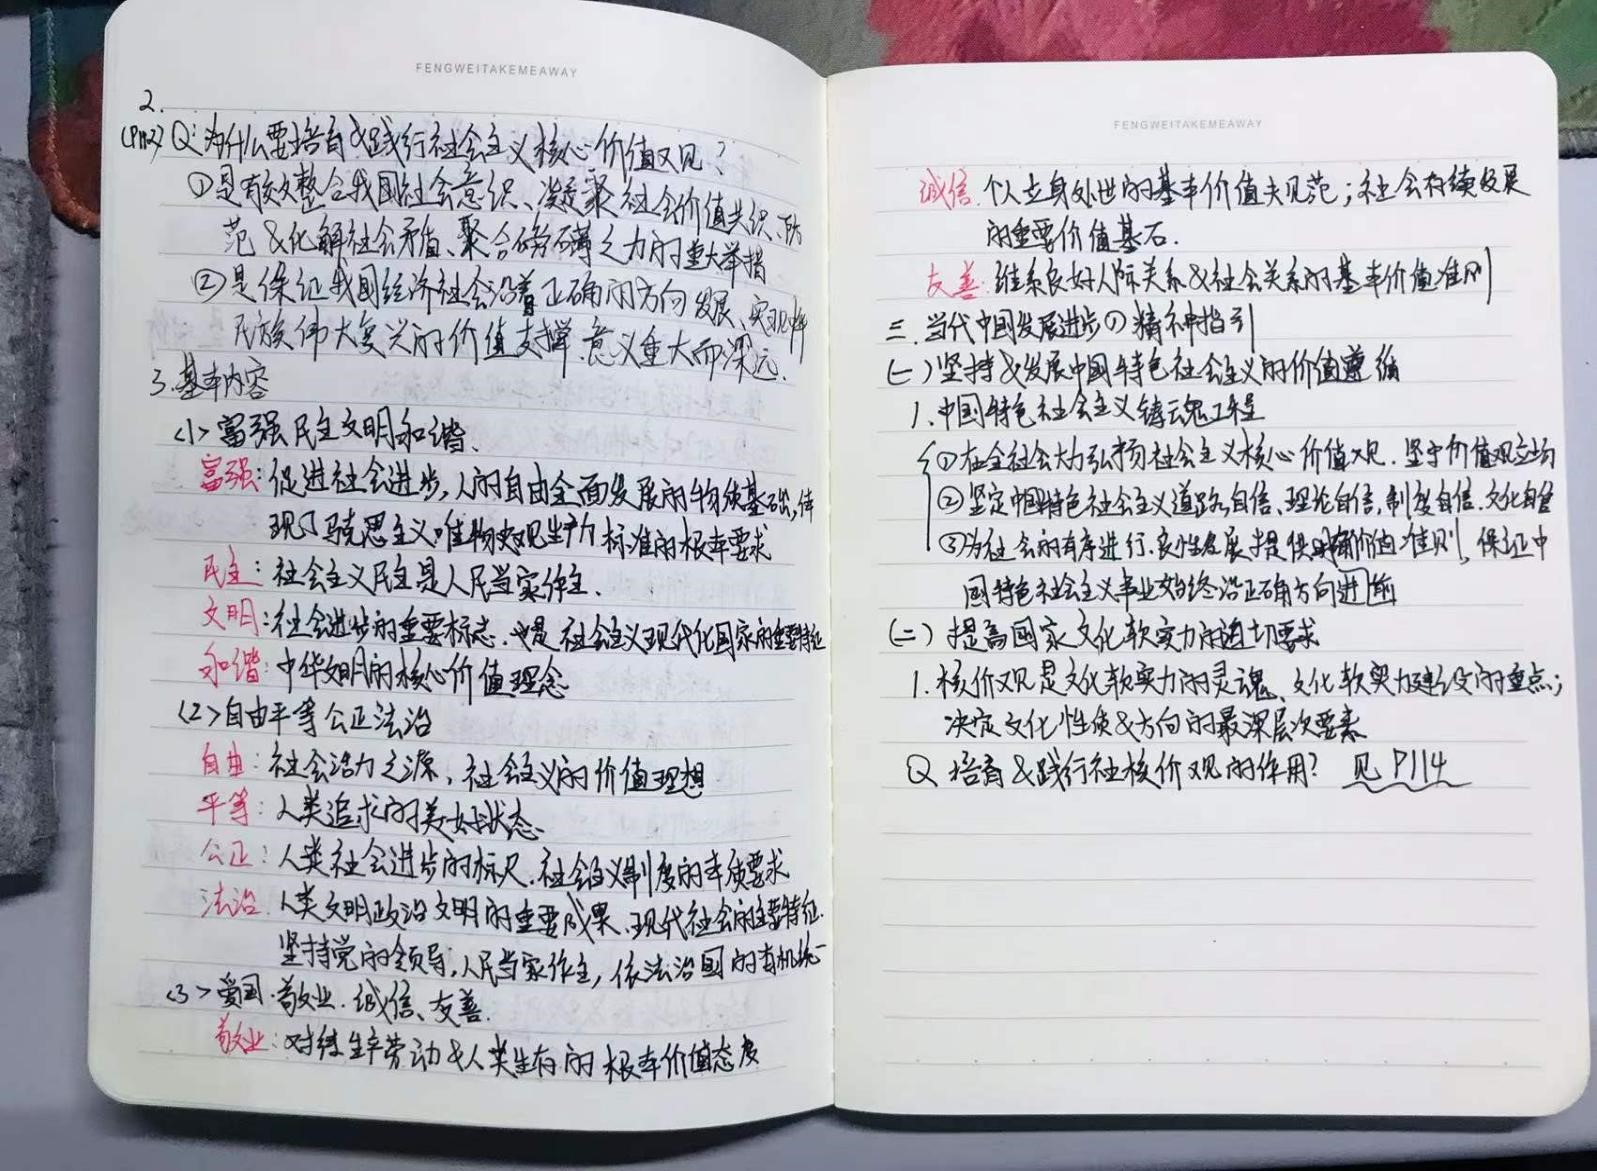 FENGWEITAKEMEAWAY
2.
(P112) Q:为什么要培育&践行社会主义核心价值观?
①是有效整合我国社会意识、凝聚社会价值共识、防
范&化解社会矛盾、聚合磅礴之力的重大举措
②是保证我国经济社会沿着正确的方向发展、实现中华
民族伟大复兴的价值支撑,意义重大而深远.
3.基本内容
<1>富强民主文明和谐.
富强:促进社会进步,人的自由全面发展的物质基础,体
现了马克思主义唯物史观生产力标准的根本要求
民主:社会主义民主是人民当家作主.
文明:社会进步的重要标志.也是社会主义现代化国家的重要特征
和谐:中华文明的核心价值理念
<2>自由平等公正法治
自由:社会活力之源,社会主义的价值理想
平等:人类追求的美好状态
公正:人类社会进步的标尺.社会主义制度的本质要求
法治.人类文明政治文明的重要成果、现代社会的主要特征.
坚持党的领导,人民当家作主,依法治国的有机统一
<3>爱国.敬业.诚信、友善.
敬业:对待生产劳动&人类生存的根本价值态度
FENGWEITAKEMEAWAY
诚信.个人立身处世的基本价值规范;社会存续发展
的重要价值基石.
友善:维系良好人际关系&社会关系的基本价值准则
三.当代中国发展进步的精神指引
(一)坚持&发展中国特色社会主义的价值遵循
1.中国特色社会主义铸魂工程
①在全社会大力弘扬社会主义核心价值观.坚守价值观立场
②坚定中国特色社会主义道路自信、理论自信,制度自信.文化自信
③为社会的有序进行.良性发展提供明确价值准则,保证中
国特色社会主义事业始终沿正确方向进前
(二)提高国家文化软实力的迫切要求
1.核价观是文化软实力的灵魂、文化软实力建设的重点;
决定文化性质&方向的最深层次要素
Q 培育&践行社核价观的作用? 见P114